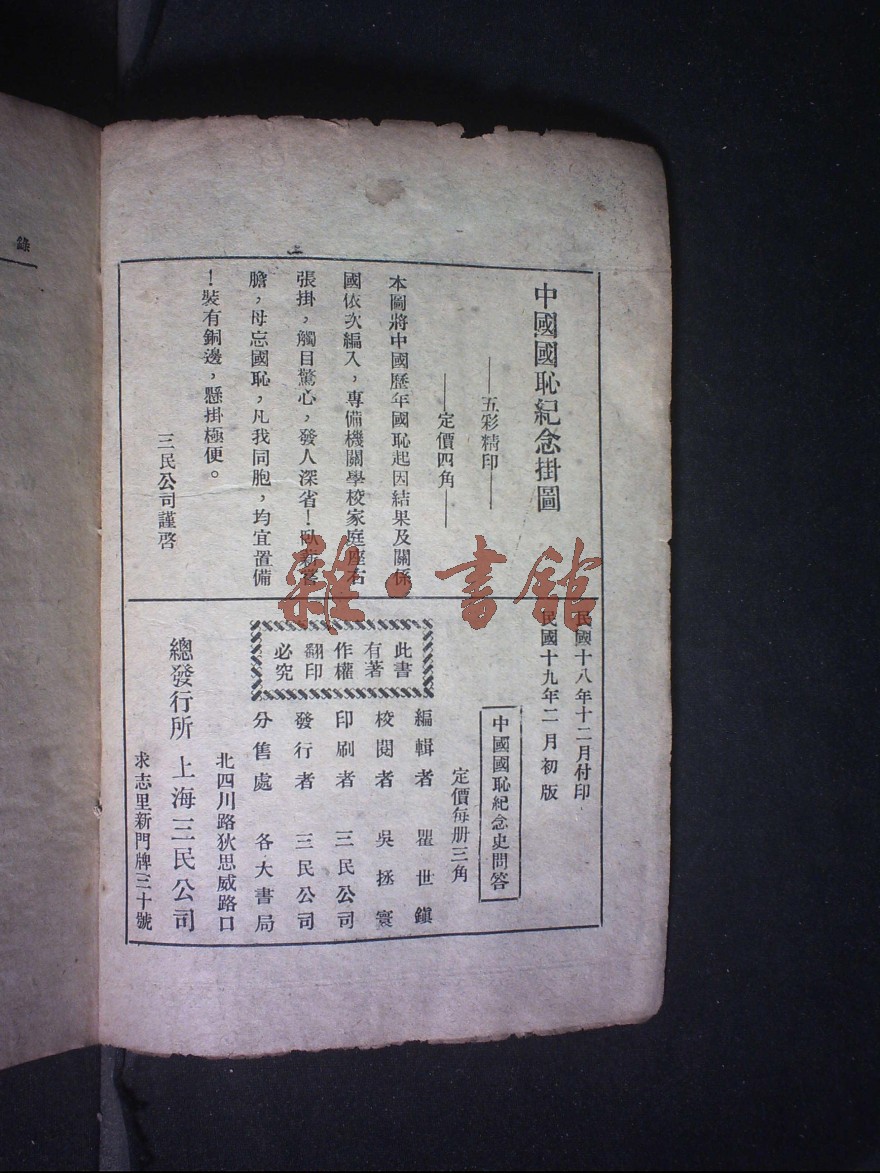 錄
中國國恥紀念掛圖
——五彩精印——
——定價四角——
本圖將中國歷年國恥起因結果及關係
國依次編入，專備機關學校家庭座右
張掛，觸目驚心，發人深省！臥薪嘗
膽，毋忘國恥，凡我同胞，均宜置備
！裝有銅邊，懸掛極便。
三民公司謹啓
民國十八年十二月付印
民國十九年二月初版
中國國恥紀念史問答
定價每册三角
編輯者 瞿世鎮
校閱者 吳拯寰
印刷者 三民公司
發行者 三民公司
分售處 各大書局
此書
有著
作權
翻印
必究
北四川路狄思威路口
總發行所 上海三民公司
求志里新門牌三十號
雜·書館